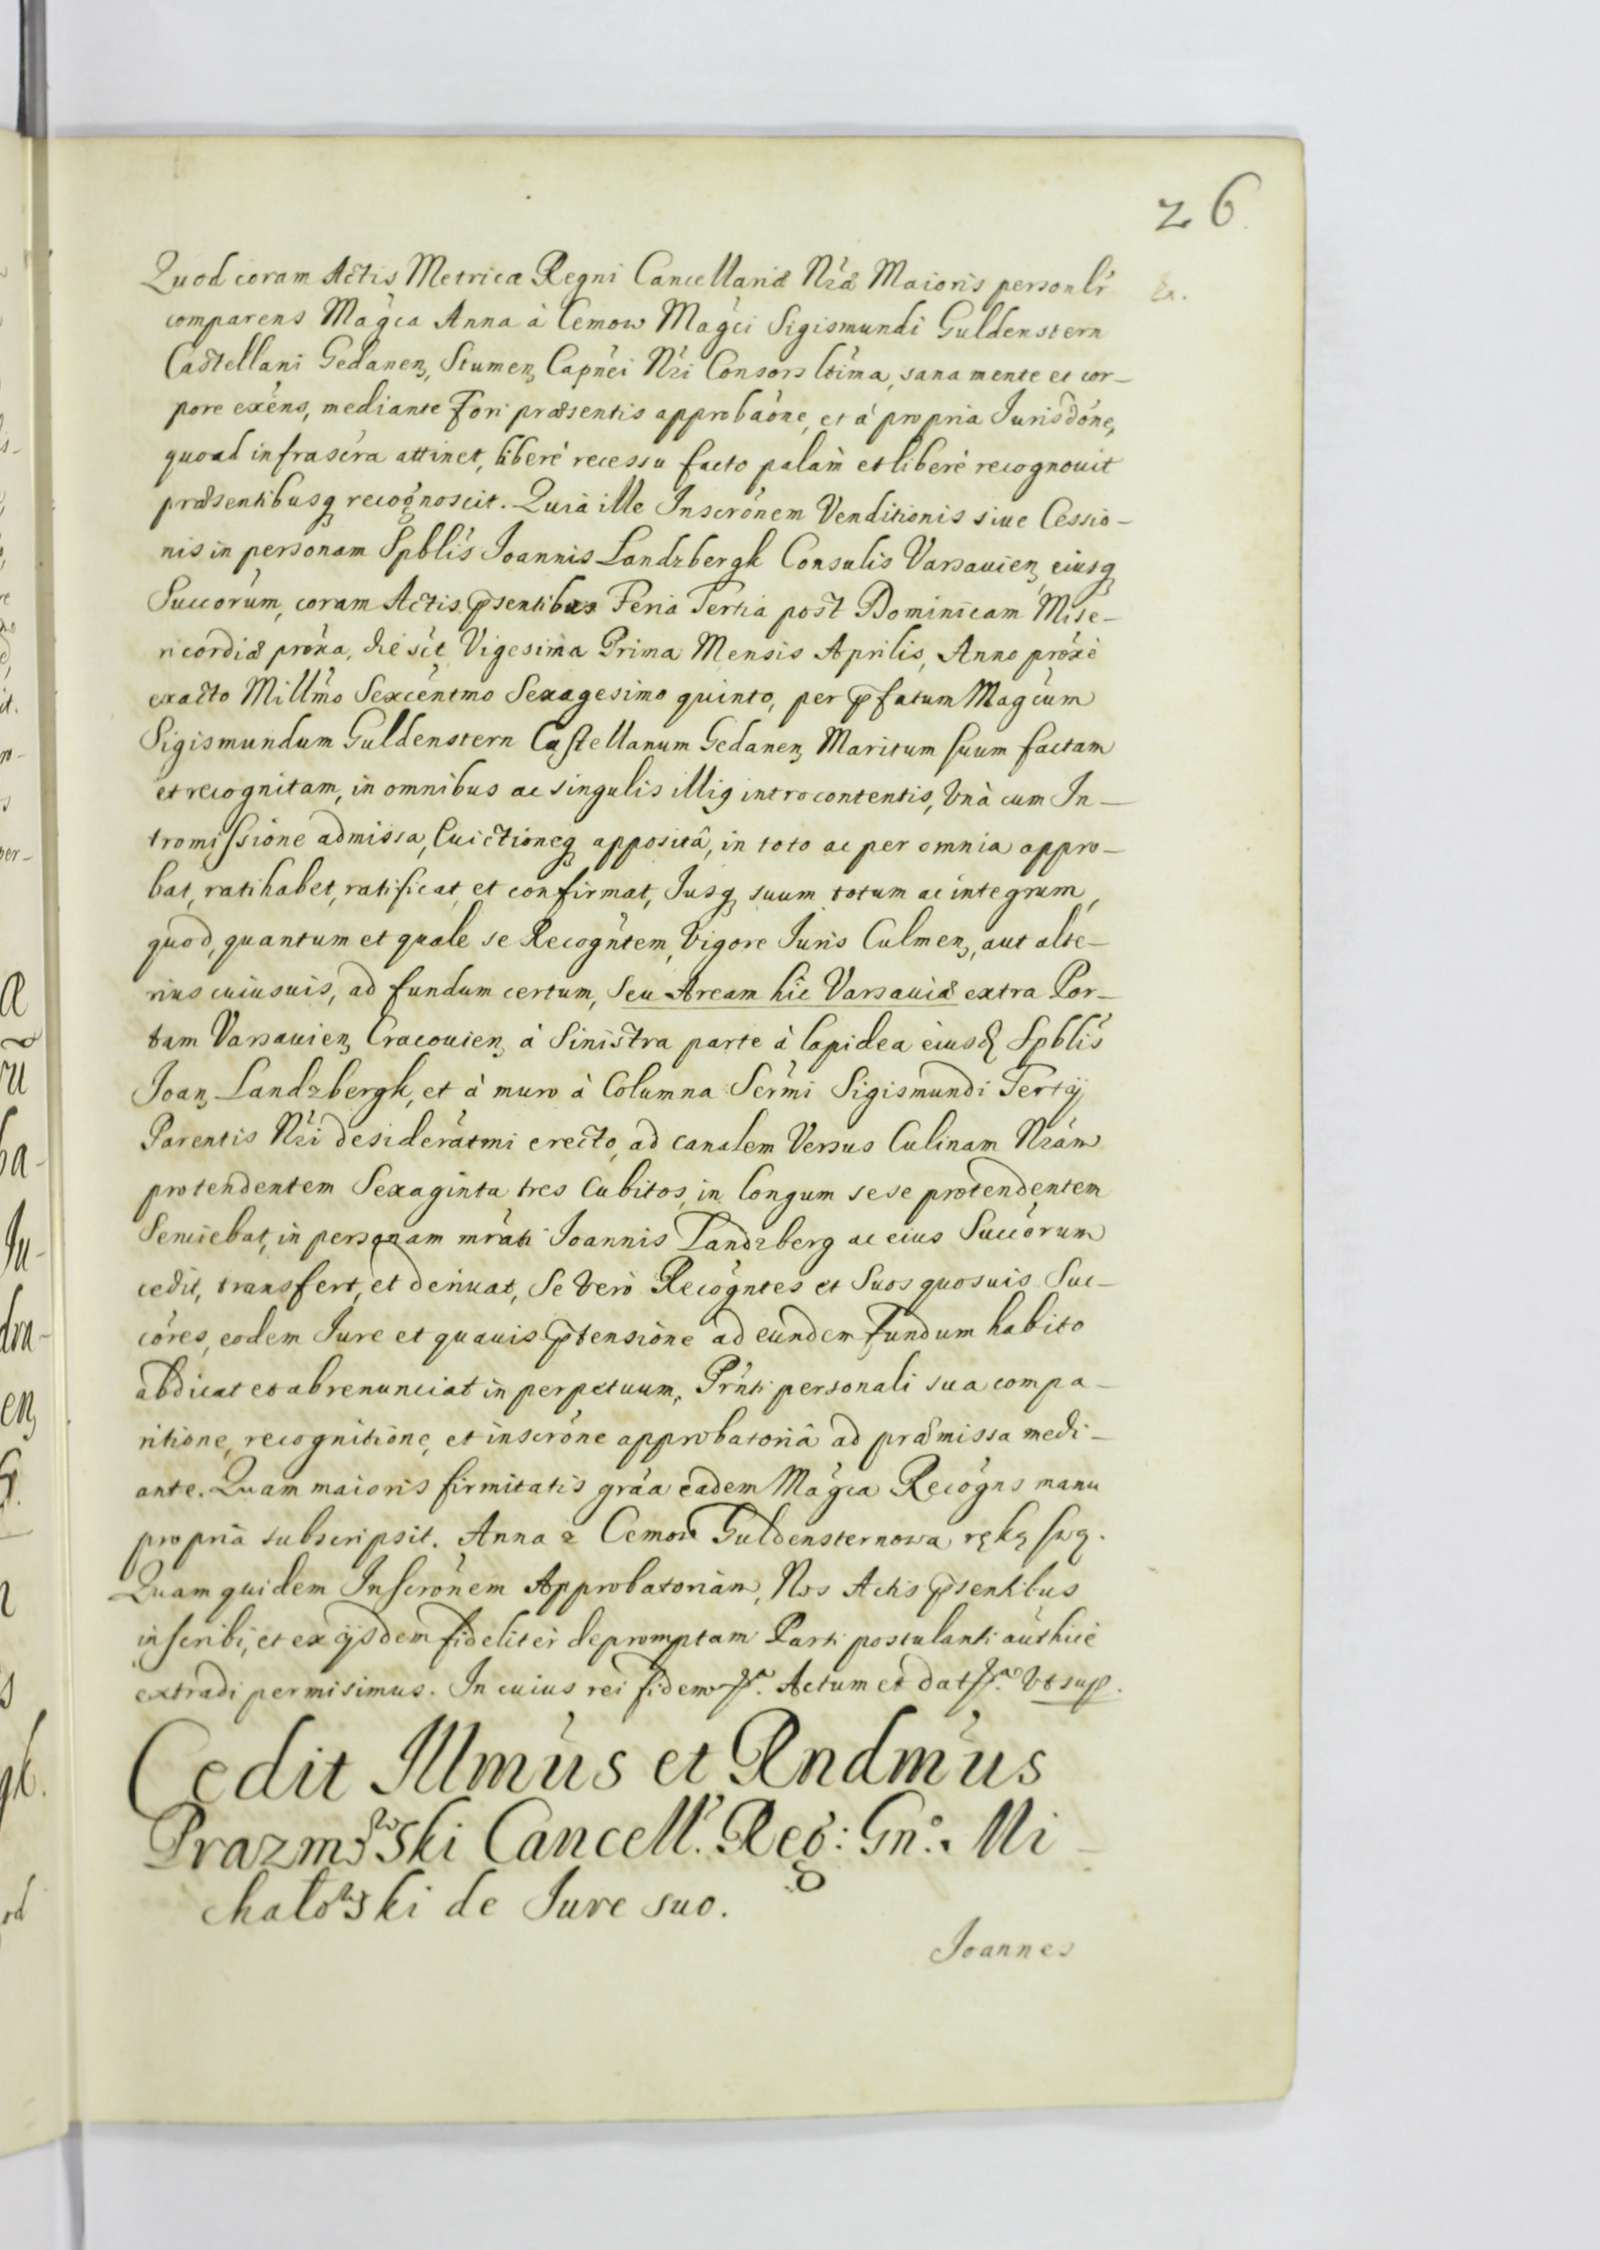 26
Quod coram Actis Metricæ Regni Cancellariæ Nr̃æ Maioris personlr̃
comparens Mag̃ca Anna à Cemow Mag̃ci Sigismundi Guldenstern
Castellani Gedanen, Stumen, Capn̄ei Nr̃i Consors lt̃ima, sana mente et cor-
pore exẽns, mediante Fori præsentis approbaõne, et à propria Jurisdõne,
quoad infrascr̃a attinet, liberè recessu facto palàm et liberè recognouit
præsentibusq recognoscit. Quia ille Inscrõnem Venditionis siue Cessio-
nis in personam Spblĩs Joannis Landzbergk Consulis Varsauien, eiusq
Succorũm, coram Actis p̃sentibus Feria Tertia post Dominicam Mise-
ricordiæ prõxa, die sc̃t Vigesima Prima Mensis Aprilis, Anno prõxè
exacto Millm̃o Sexcẽntmo Sexagesimo quinto, per p̃fatum Magc̃um
Sigismundum Guldenstern Castellanum Gedanen, Maritum suum factam
et recognitam, in omnibus ac singulis illiq introcontentis, Vnà cum In-
tromissione admissa, Euictioneq appositâ, in toto ac per omnia appro-
bat, ratihabet, ratificat, et confirmat, Jusq suum totum ac integrum,
quod, quantum et quale se Recogñtem, Vigore Juris Culmen, aut alte-
rius cuiusuis, ad fundum certum, seu Aream hic Varsauiæ extra Por-
tam Varsauien, Cracouien, à Sinistra parte à lapidea eiusd Spblĩs
Joan, Landzbergk, et à muro à Columna Serm̃i Sigismundi Tertij
Parentis Nr̃i desiderãtmi erecto, ad canalem Versus Culinam Nrãm
protendentem Sexaginta tres Cubitos in longum sese protendentem
Seruiebat, in personam mrãti Joannis Landzberg ac eius Succõrum
cedit, transfert, et deriuat, Se Verò Recogñtes et Suos quosuis Suc-
cõres, eodem Jure et quauis p̃tensione ad eundem Fundum habito
abdicat et abrenunciat in perpetuum, Prñti personali sua compa-
ritione, recognitione, et inscrõne approbatoriâ ad præmissa medi-
ante. Quam maioris firmitatis grãa eadem Mag̃ca Recogñs manu
propria subscripsit. Anna z Cemow Guldensternowa ręką swą.
Quam quidem Inscrõnem Approbatoriam, Nos Actis p̃sentibus
inscribi, et ex ijsdem fideliter depromptam Parti postulanti aũthice
extradi permisimus. In cuius rei fidem Actum et dat Vt sup.
Cedit Illmũs et Rndmũs
Prazmowski Cancell. Reg: Gn̊. Mi-
chałowski de Jure suo.
Joannes